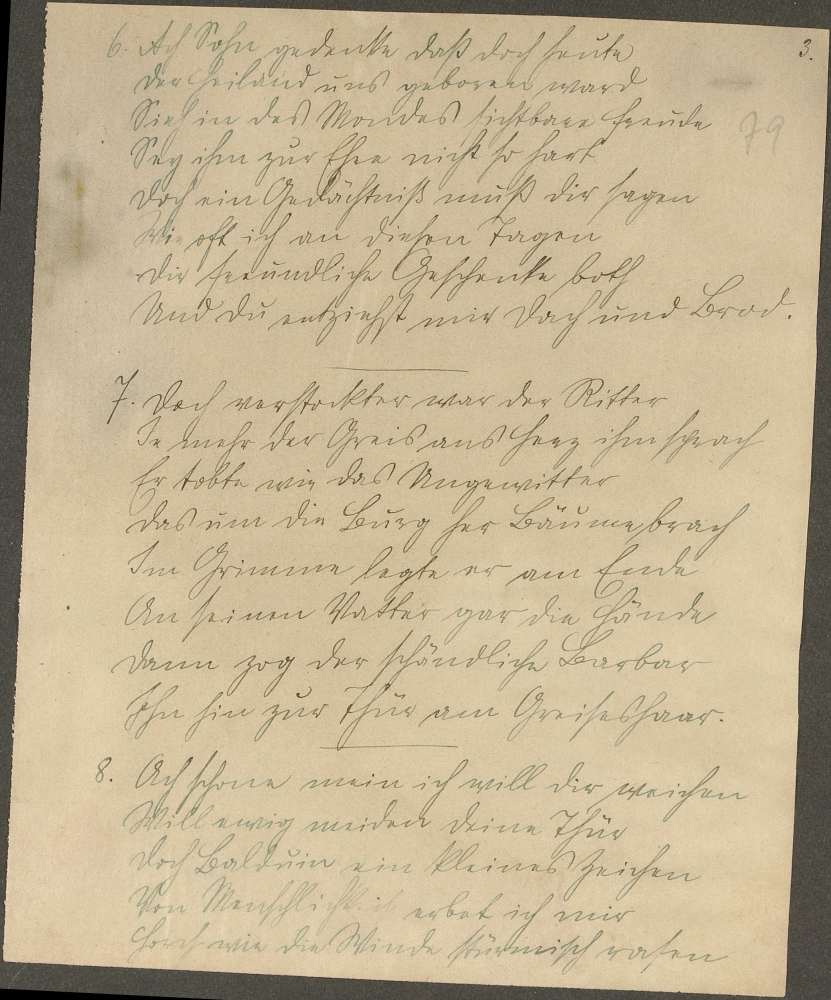 3.
79
6. Ach Sohn gedenke daß doch heute
Der Heiland uns geboren ward
Sieh in des Mondes sichtbare Freude
Sey ihm zur Ehre nicht so hart
Doch ein Gedächtniß muß dir sagen
Wie oft ich an diesen Tagen
Dir freundliche Geschenke both
Und du entziehst mir Dach und Brod.
7. Doch verstockter war der Ritter
Je mehr der Greis ans Herz ihm sprach
Er tobte wie das Ungewitter
Das um die Burg her Bäume brach
Im Grimme legte er am Ende
An seinen Vatter gar die Hände
Dann zog der schändliche Barbar
Ihn hin zur Thür am Greiseshaar.
8. Ach schone mein ich will dir weichen
Will ewig meiden deine Thür
Doch Balduin ein kleines Zeichen
Von Menschlichkeit erbet ich mir
Horch wie die Winde stürmisch rasen